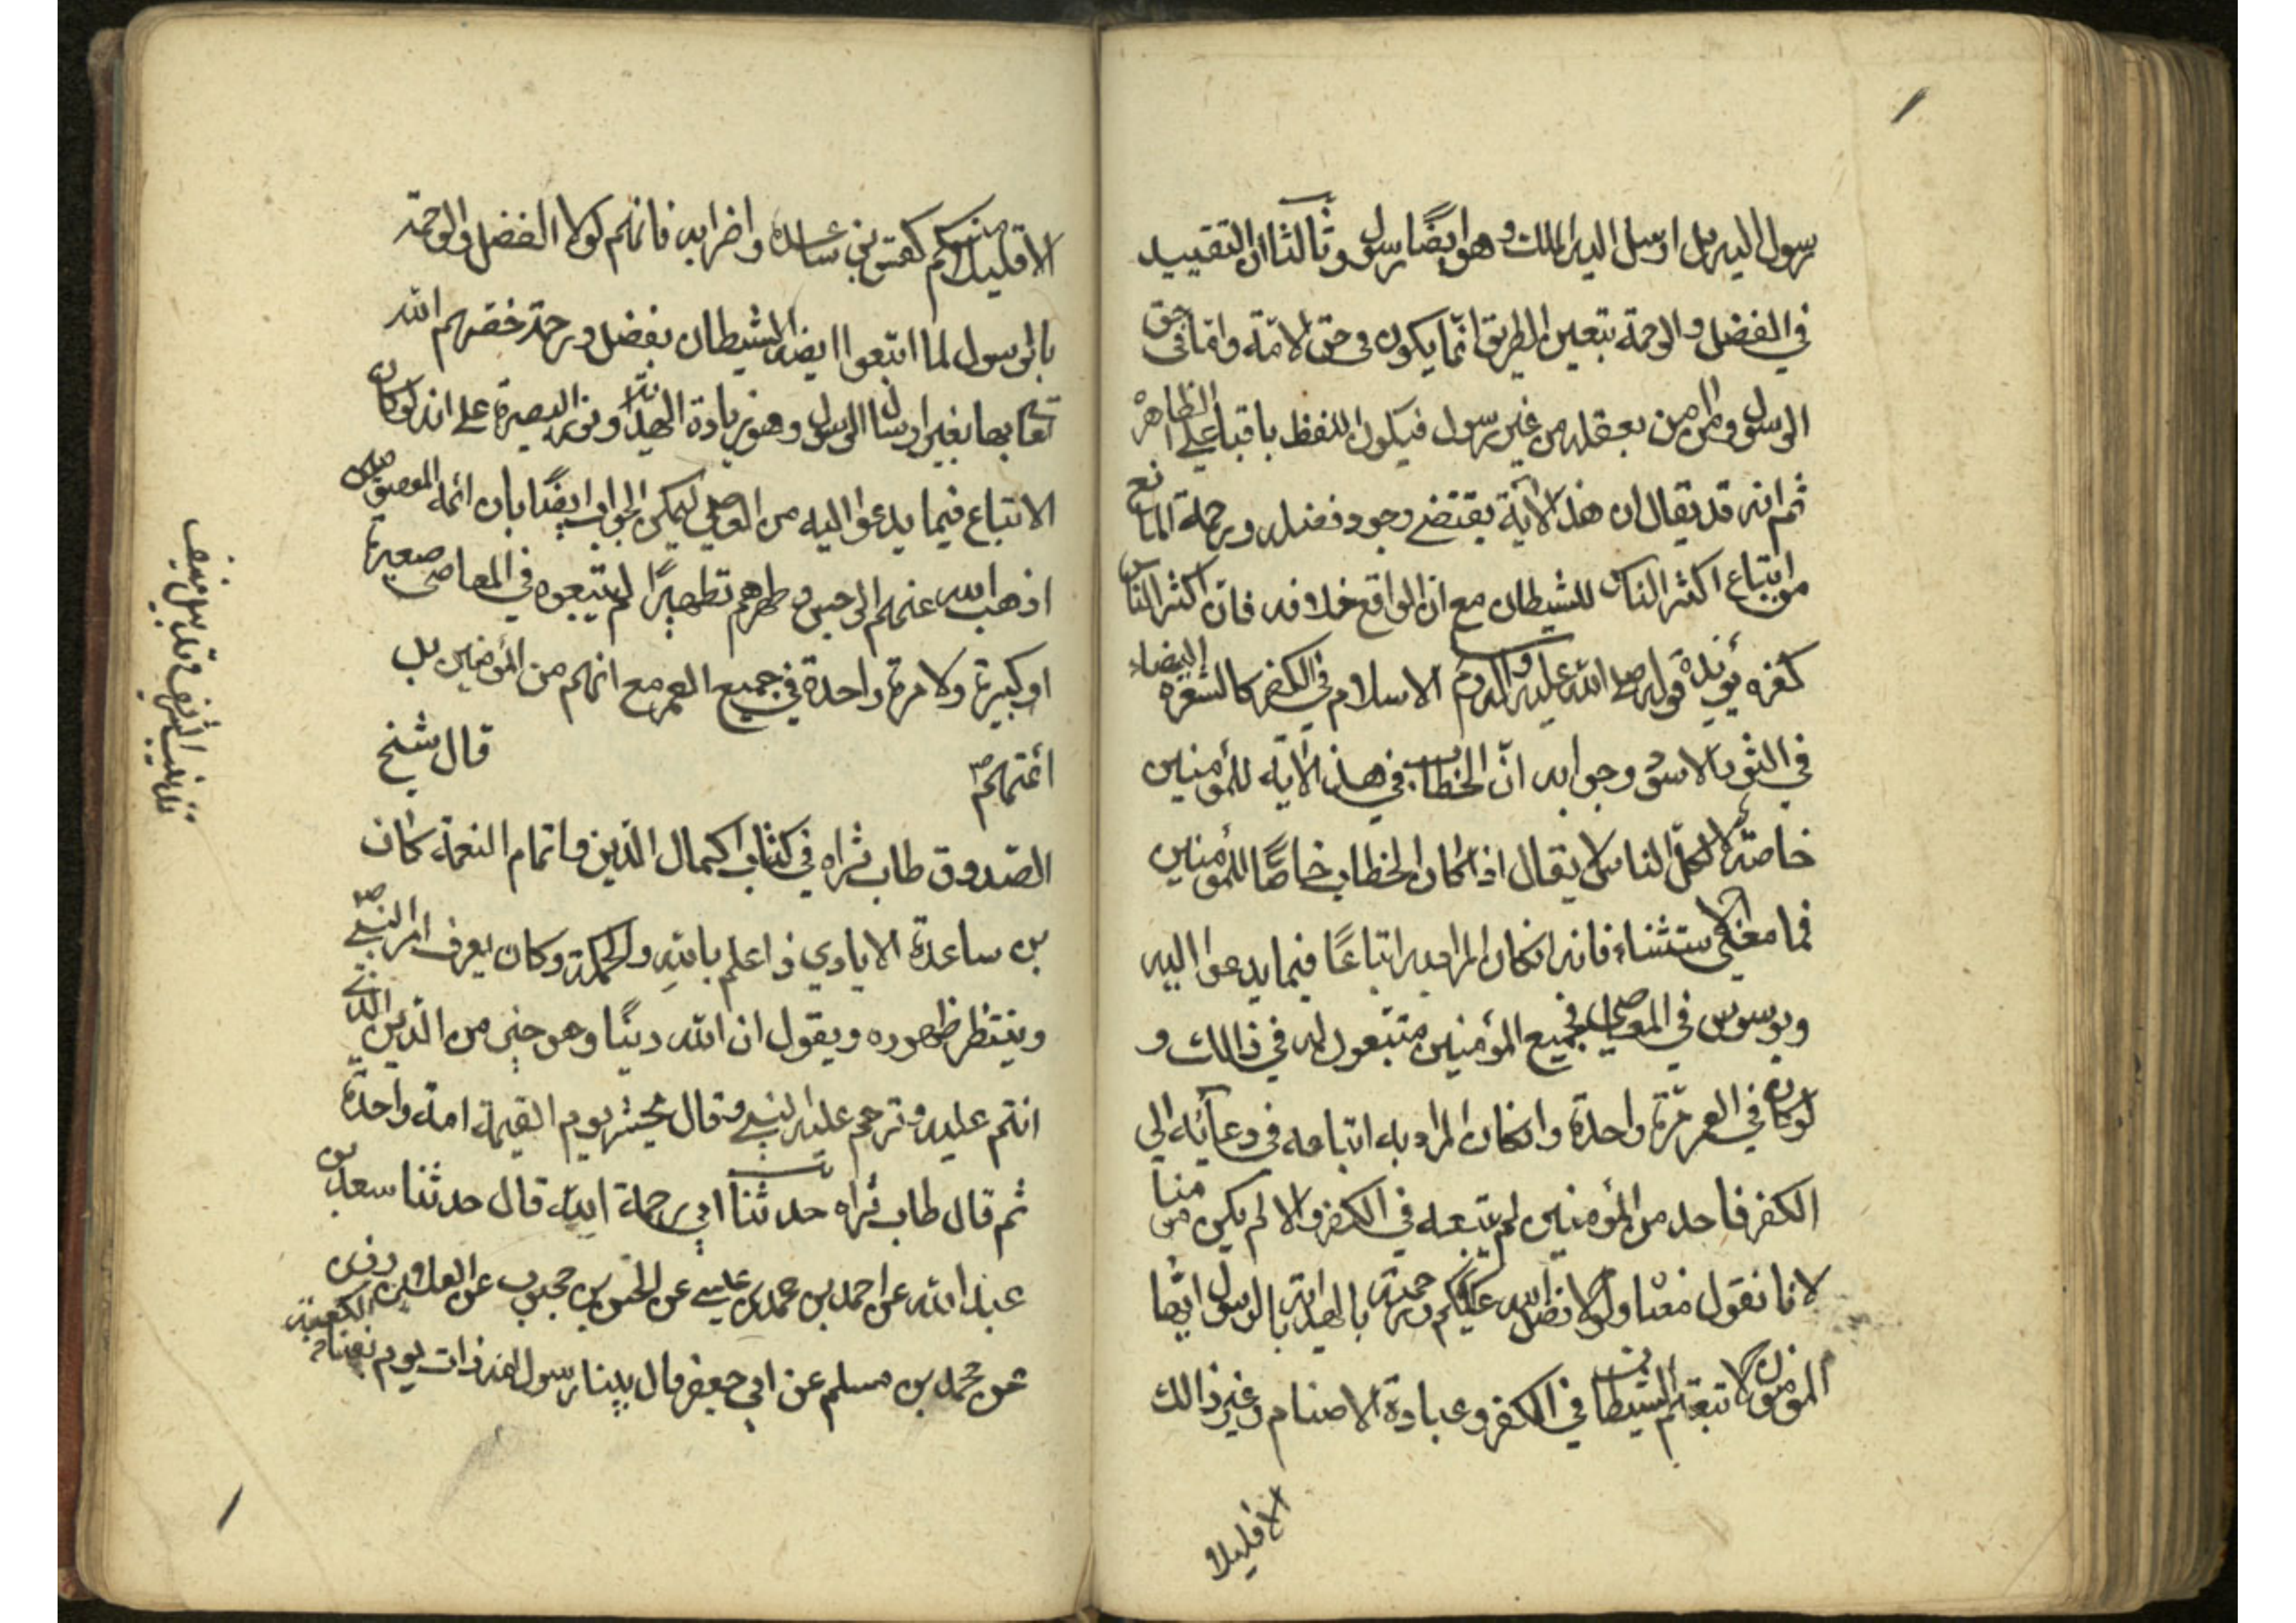 رسول اليه بل ارسل اليه الملك وهو ايضًا رسول وثالثا ان التقييد
في الفضل والرحمة بتعين الطريق انّما يكون في حق الامّة وامّا في حق
الرسول ومن امن بعقله من غير رسول فيكون اللفظ باقيا على الظاهر
ثم انه قد يقال ان هذه الآية يقتضى وجود فضله ورحمة المانع
من اتباع اكثر الناس للشيطان مع ان الواقع خلافه فان اكثر الناس
كفره يؤيده قوله صلى الله عليه واله وسلم الاسلام في الكفر كالشعرة البيضاء
في الثور الاسود وجوابه انّ الخطاب في هذه الآية للمؤمنين
خاصّة لا لكلّ الناس لا يقال اذا كان الخطاب خاصًّا للمؤمنين
فما معنى الاستثناء فانه ان كان المراد به اتباعًا فيما يدعوا اليه
ويوسوس في المعاصي فجميع المؤمنين متبعون له في ذالك و
لو كان في العمر مرّة واحدة وان كان المراد به اتباعه في دعائه الى
الكفر فاحد من المؤمنين لم يتبعه في الكفر والا لم يكن مؤمنا
لانا نقول معناه ولولا فضل الله عليكم ورحمته بالهداية بالرسول ايها
المؤمنون لا تبعتم الشيطان في الكفر وعبادة الاصنام وغير ذالك
الا قليلا
الا قليلا منكم كقس بن ساعدة واضرابه فانهم لولا الفضل والرحمة
بالرسول لما اتبعوا ايضا الشيطان بفضل ورحمة خصّهم الله
تعالى بها بغير ارسال الرسول وهو زيادة الهداية ونور البصيرة على انه لو كان
الاتباع فيما يدعوا اليه من المعاصي ليمكن الجواب ايضًا بان ائمة المعصومين
اذهب الله عنهم الرجس وطهرهم تطهيرًا لم يتبعوه في المعاصي صغيرة
او كبيرة ولا مرة واحدة في جميع العمر مع انهم من المؤمنين بل
ائمتهم قال شيخ
الصّدوق طاب ثراه في كتاب اكمال الدّين واتمام النعمة كان
بن ساعدة الايادي ذا علم بالله والحكمة وكان يعرف امر النبي
وينتظر ظهوره ويقول ان لله دينًا وهو خير من الدّين الذي
انتم عليه وترحم عليه النبي وقال يحشر يوم القيمة امة واحدة
ثم قال طاب ثراه حدثنا ابي رحمة الله قال حدثنا سعد بن
عبد الله عن احمد بن محمد بن عيسى عن الحسن بن محبوب عن العلا بن رزين
عن محمد بن مسلم عن ابي جعفر قال بينا رسول الله ذات يوم بفناء الكعبة